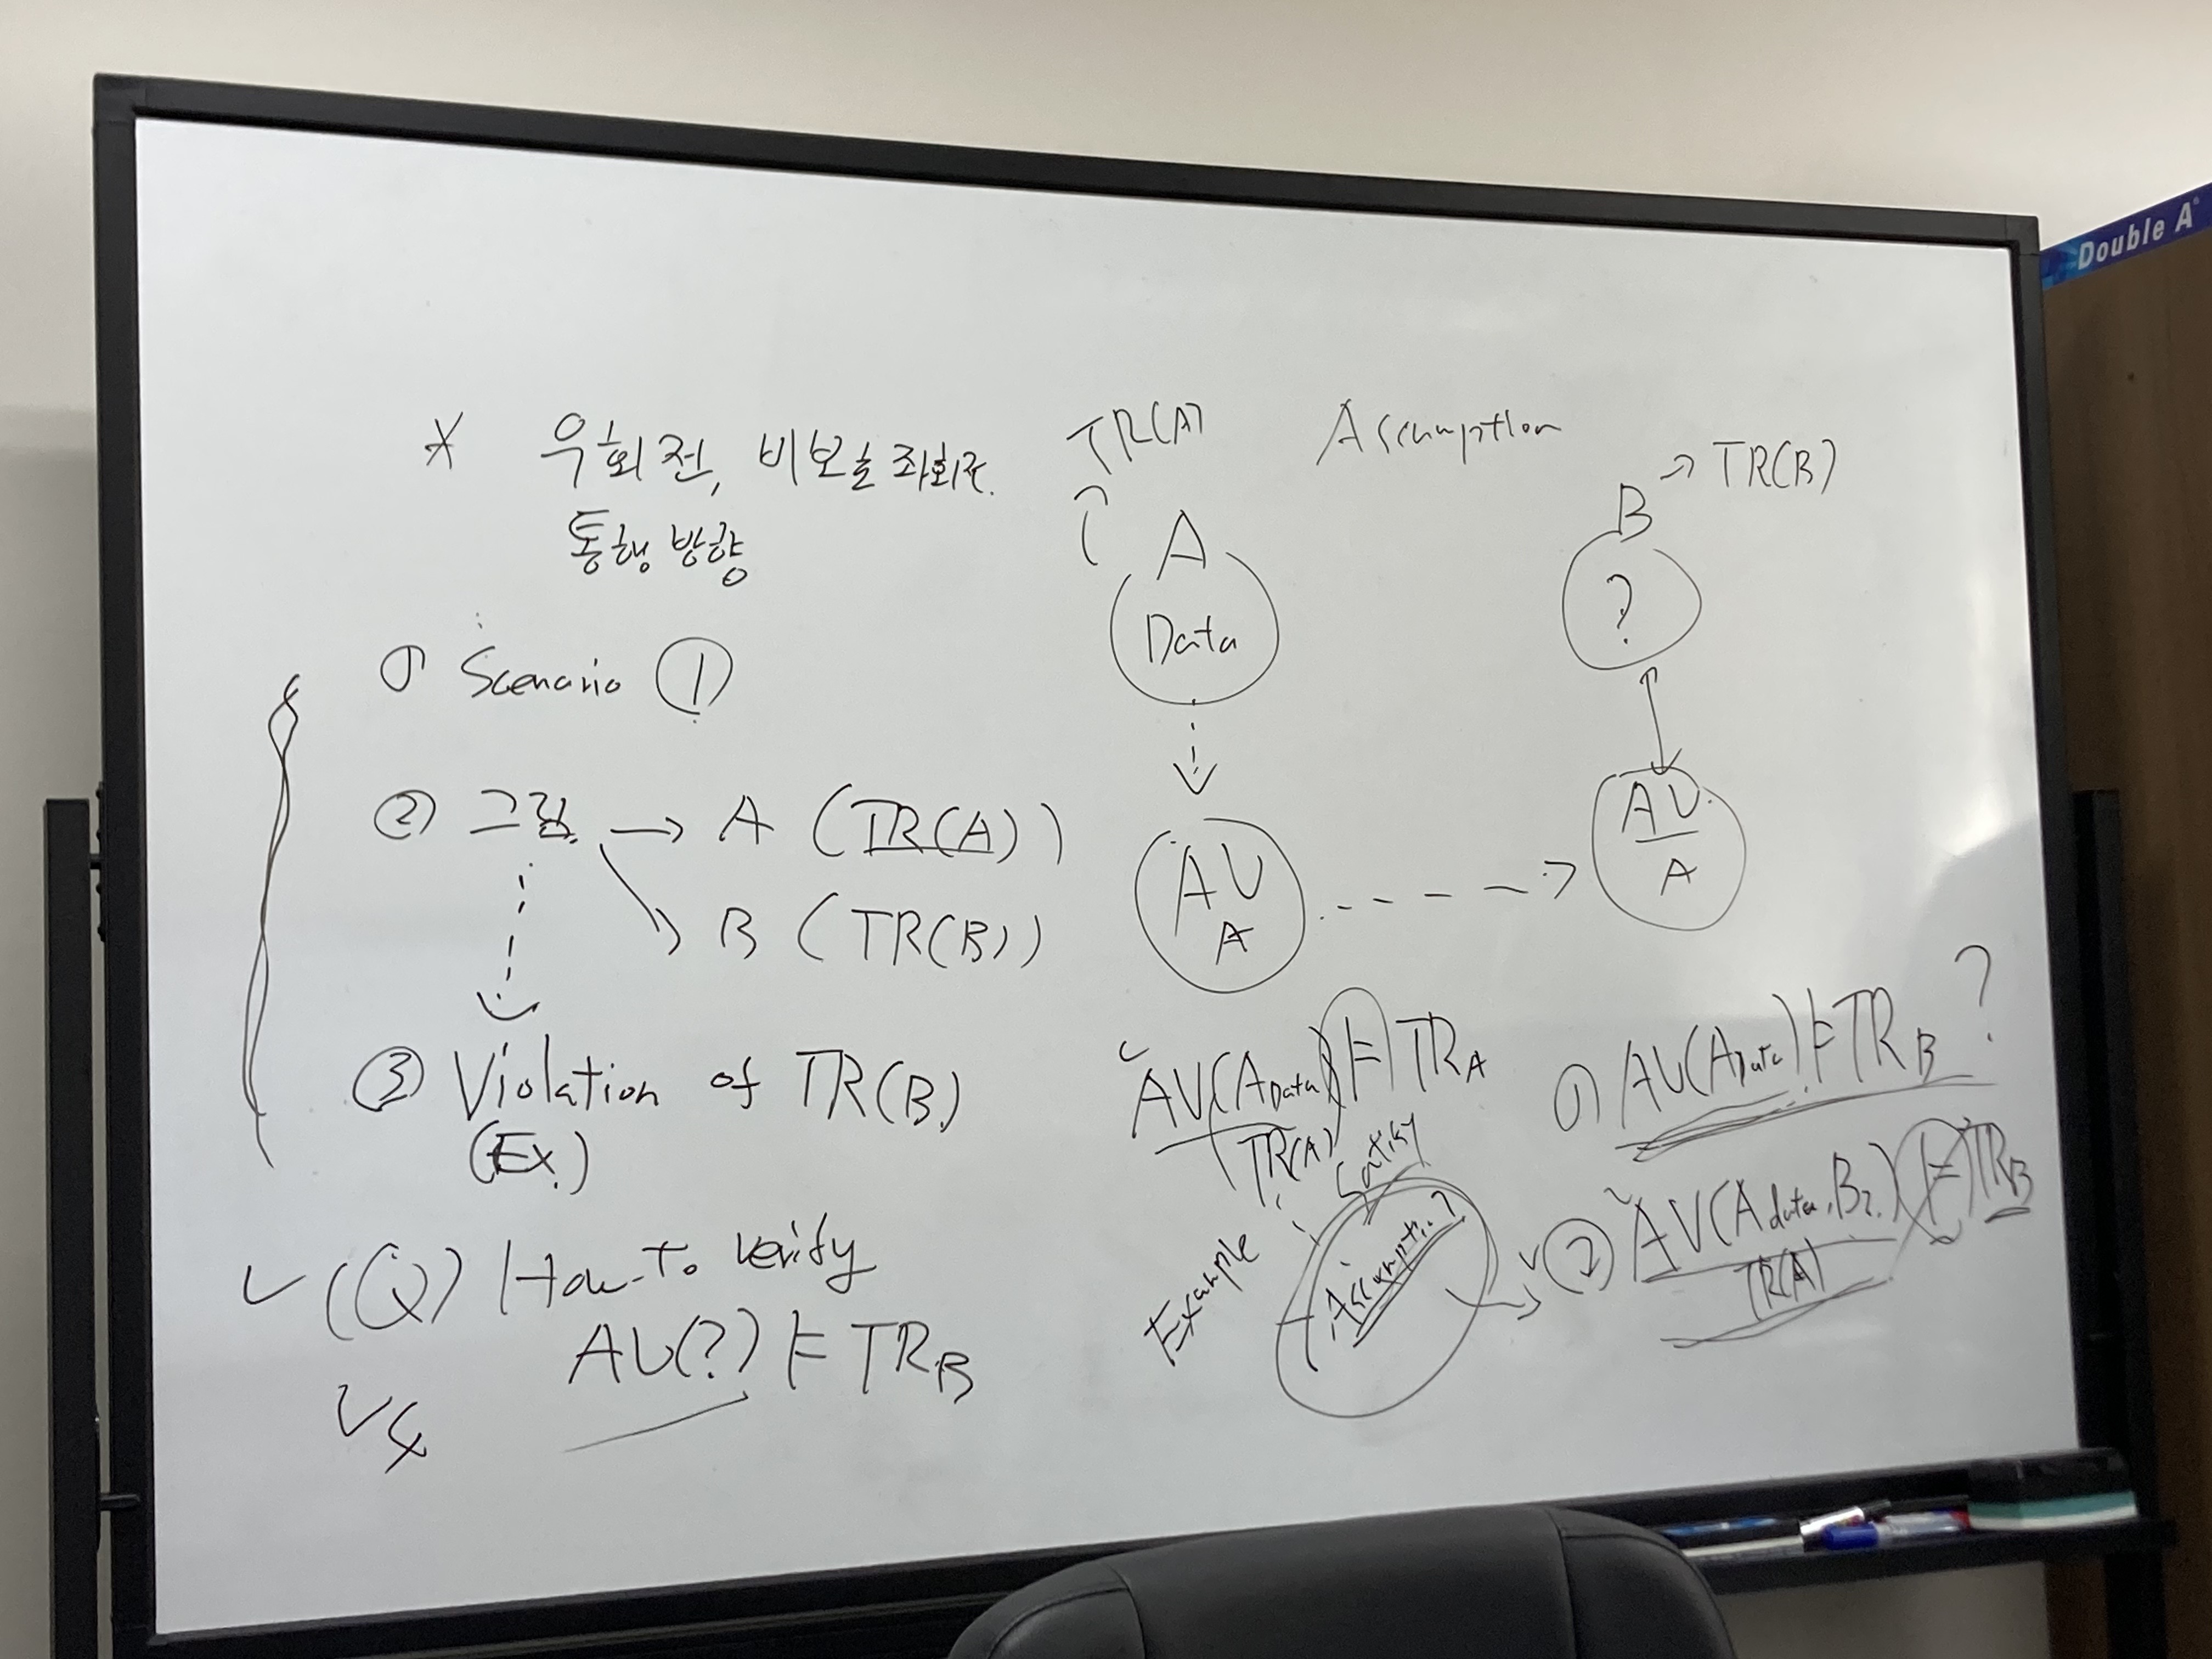 * 우회전, 비보호 좌회전.
통행 방향
① Scenario ①
② 그림 → A (TR(A))
B (TR(B))
③ Violation of TR(B)
(Ex.)
(Q) How-To verify
AV(?) ⊨ TR_B
TR(A)
Assumption
A
Data
AV
A
B → TR(B)
?
AV
A
AV(A_Data) ⊨ TR_A
TR(A)
Satisfy
Example
Assumption?
① AV(A_Data) ⊨ TR_B ?
② AV(A_data, B?) ⊨ TR_B
TR(A)
Double A